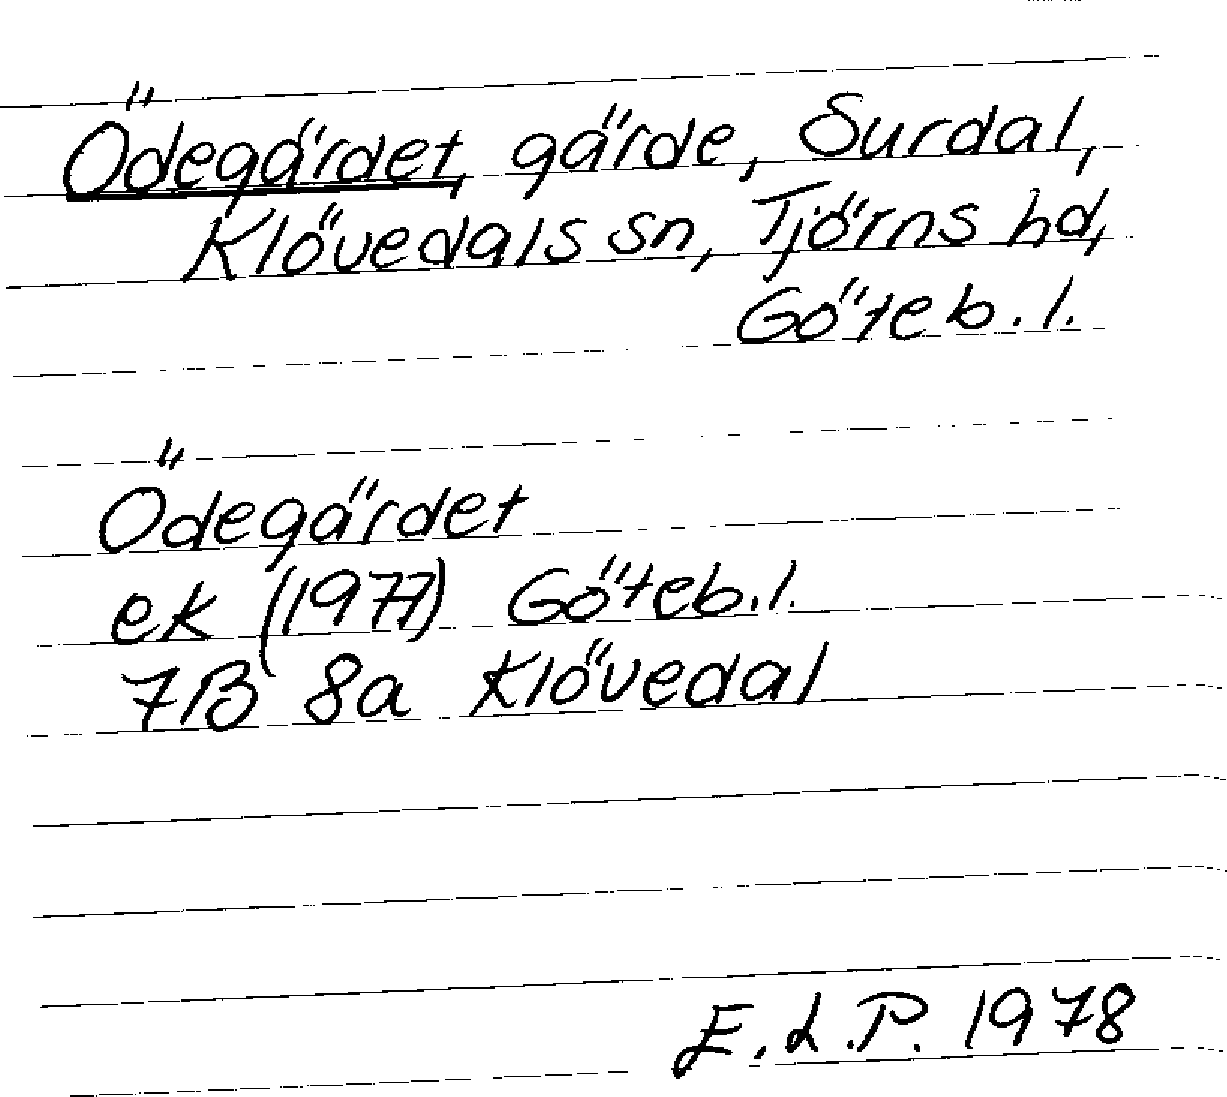 Ödegärdet, gärde, Surdal,
Klövedals sn, Tjörns hd,
Göteb. l.
Ödegärdet
ek (1977) Göteb. l.
7B 8a Klövedal
E. L. P. 1978